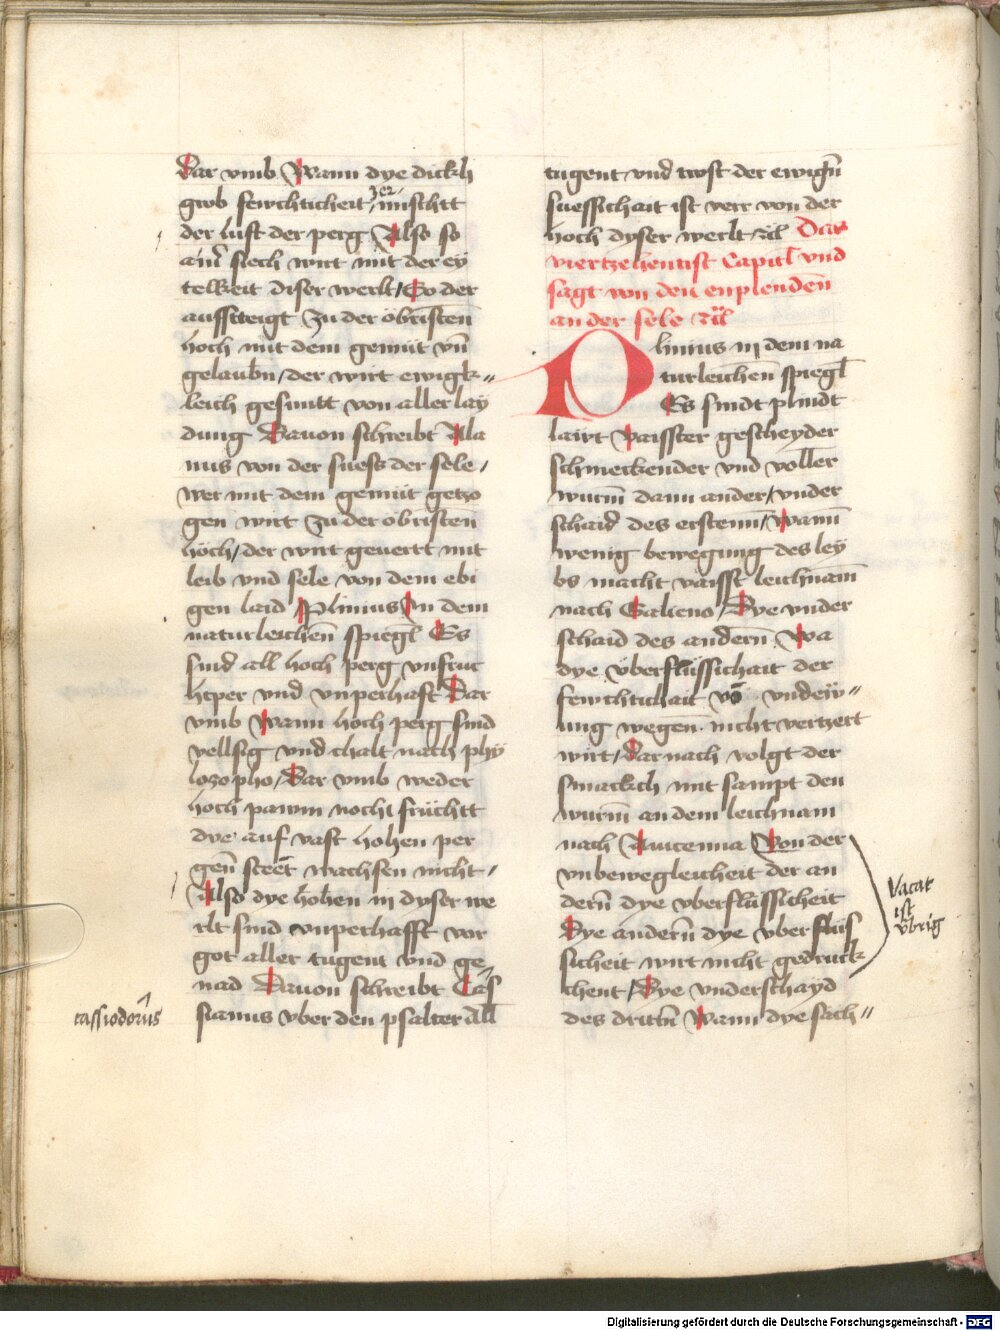 Dar vmb Wann dye dickh
grob fewchticheit zer mischtt
der luft der perg Also so
ain siech wirt mit der ey
telkeit diser werlt So der
aufsteigt Zu der öbristen
höch mit dem gemüt vn̄
gelaubn / der wirt ewigk〃
leich gesuntt von aller lay
dung Dauon schreibt Ala
nus von der suess der sele /
wer mit dem gemüt getzo
gen wirt Zu der öbristen̄
höch / der wirt geuertt mit
leib vnd sele von dem ebi
gen laid Plinius In dem
naturleichen̄ spiegl Es
sind all hoch perg vnfruc
htper vnd vnperhaft Dar
vmb Wann hoch perg sind
vellsig vnd chalt nach phy
lozopho / Dar vmb weder
hoch pawm noch früchtt
dye auf vast hohen per
gen̄ steet wachsen nicht ·
Also dye höhen in dyser we
rlt sind vnperhafft vor
got aller tugent vnd ge
nad Dauon schreibt Cas
sianus vber den psalter All
cassiodorus
tugent vnd trost der ewign̄
suessichait ist verr von der
hoch dyser werlt Das
viertzehentist Capitl vnd
sagt von den enplenden̄
an der sele
Plinius in dem na
turleichen̄ spiegl
Es sindt plindt
lairt vaisster gescheyder
schmeckender vnd voller
wurm̄ dann ander / vnder
schaid des ersten̄ / Wann̄
wenig bewegung des ley
bs macht vaisst leichnam̄
nach Galieno / Dye vnder
schaid des andern̄ Wa
dye überflüssichait der
fewchtichait vō vndew〃
ung wegen̄ nicht vertzert
wirt / Dar nach volgt der
smackch mit sampt den
wurm̄ an dem leichnam
nach Auicenna Von der
vnbewegleicheit der an
dern̄ dye vberflüssicheit
Dye andern̄ dye vber flüs
sicheit wirt nicht gedruck
chent / Dye vnderschayd
des dritn̄ Wann dye sach〃
Vacat
ist
vbrig
Digitalisierung gefördert durch die Deutsche Forschungsgemeinschaft - DFG